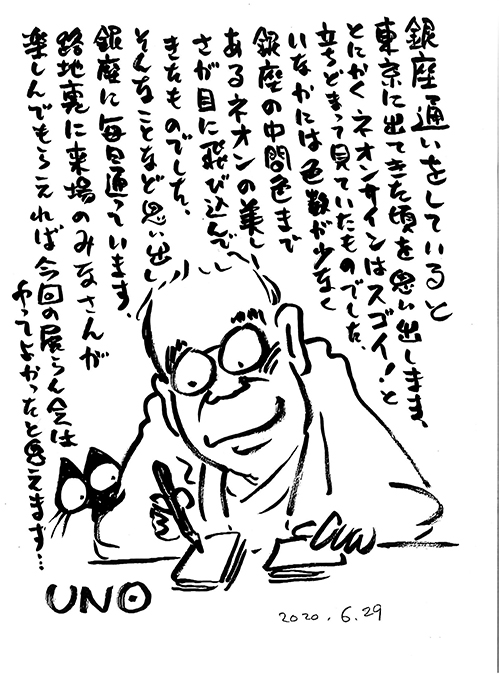 銀座通いをしていると
東京に出てきた頃を思い出します、
とにかくネオンサインはスゴイ！と
立ちどまって見ていたものでした、
いなかには色数が少なく
銀座の中間色まで
あるネオンの美し
さが目に飛び込んで
きたものでした、
そんなことなど思い出し
銀座に毎日通っています
路地裏に来場のみなさんが
楽しんでもらえれば今回の展らん会は
やってよかったと思えます…
UNO
2020.6.29